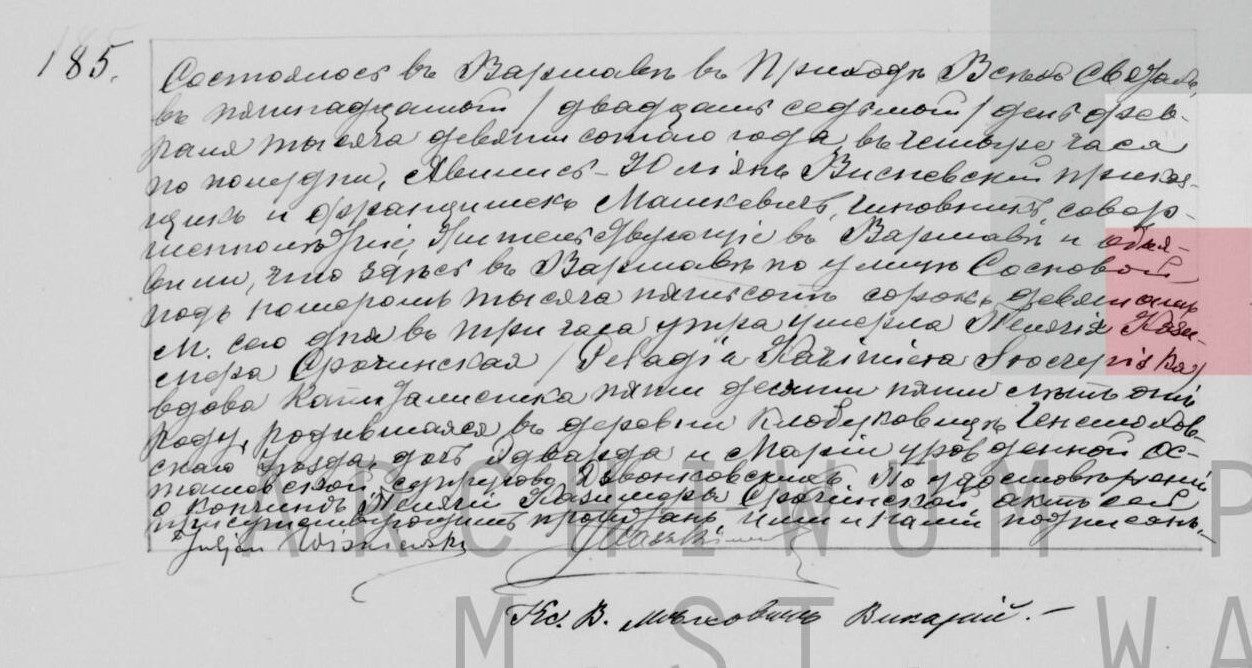 185.
Состоялось въ Варшавѣ въ Приходѣ Всѣхъ Святыхъ,
въ пятнадцатый / двадцать седьмой / день фев-
раля тысяча девятисотаго года, въ четыре часа
по полудни. Явились Юліянъ Висневскій прикащикъ
и Францишекъ Машкевичъ, чиновникъ, совер-
шеннолѣтніе, жительствующіе въ Варшавѣ и объя-
вили, что здѣсь въ Варшавѣ по улицѣ Сосновой
подъ номеромъ тысяча пятьсотъ сорокъ девятымъ
М. сего дня въ три часа утра умерла Пелагія Кази-
мера Срочинская / Pelagia Kazimiera Sroczyńska /
вдова капиталистка пятидесяти пяти лѣтъ отъ
роду, родившаяся въ деревни Клобуковицѣ Ченстохов-
скаго уѣзда, дочь Эдварда и Маріи урожденной Ос-
супруговъ По удостовѣреніи
о кончинѣ Пелагіи Казимеры Срочинской, актъ сей
присутствующимъ прочитанъ, ими и нами подписанъ.
Juljan Wiśniewski
Кс. В. Викарій.
ARCHIWUM P
M. ST. WA